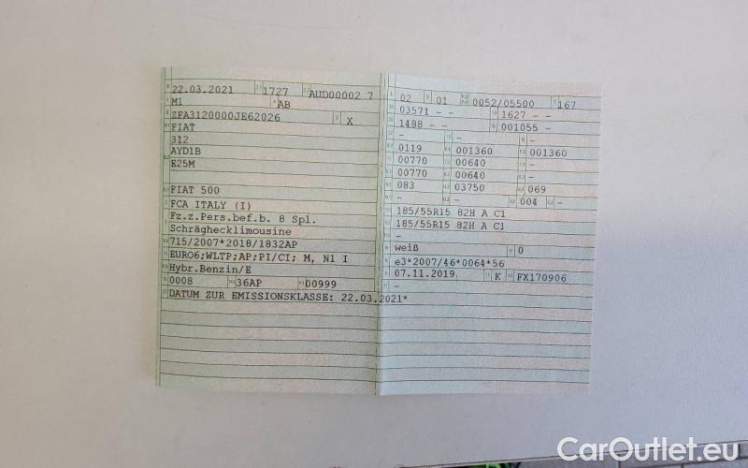 22.03.2021 1727 AUD00002 7
M1 AB
ZFA3120000JE62026 X
FIAT
312
AYD1B
E25M
FIAT 500
FCA ITALY (I)
Fz.z.Pers.bef.b. 8 Spl.
Schräghecklimousine
715/2007*2018/1832AP
EURO6;WLTP;AP;PI/CI; M, N1 I
Hybr.Benzin/E
0008 36AP 00999
DATUM ZUR EMISSIONSKLASSE: 22.03.2021*
02 01 0052/05500 167
03571 - - 1627 - -
1488 - - 001055 - -
- - -
0119 001360 001360
00770 00640 -
00770 00640 -
083 03750 069
- - 004 -
185/55R15 82H A C1
185/55R15 82H A C1
-
weiß 0
e3*2007/46*0064*56
07.11.2019 K FX170906
-
CarOutlet.eu